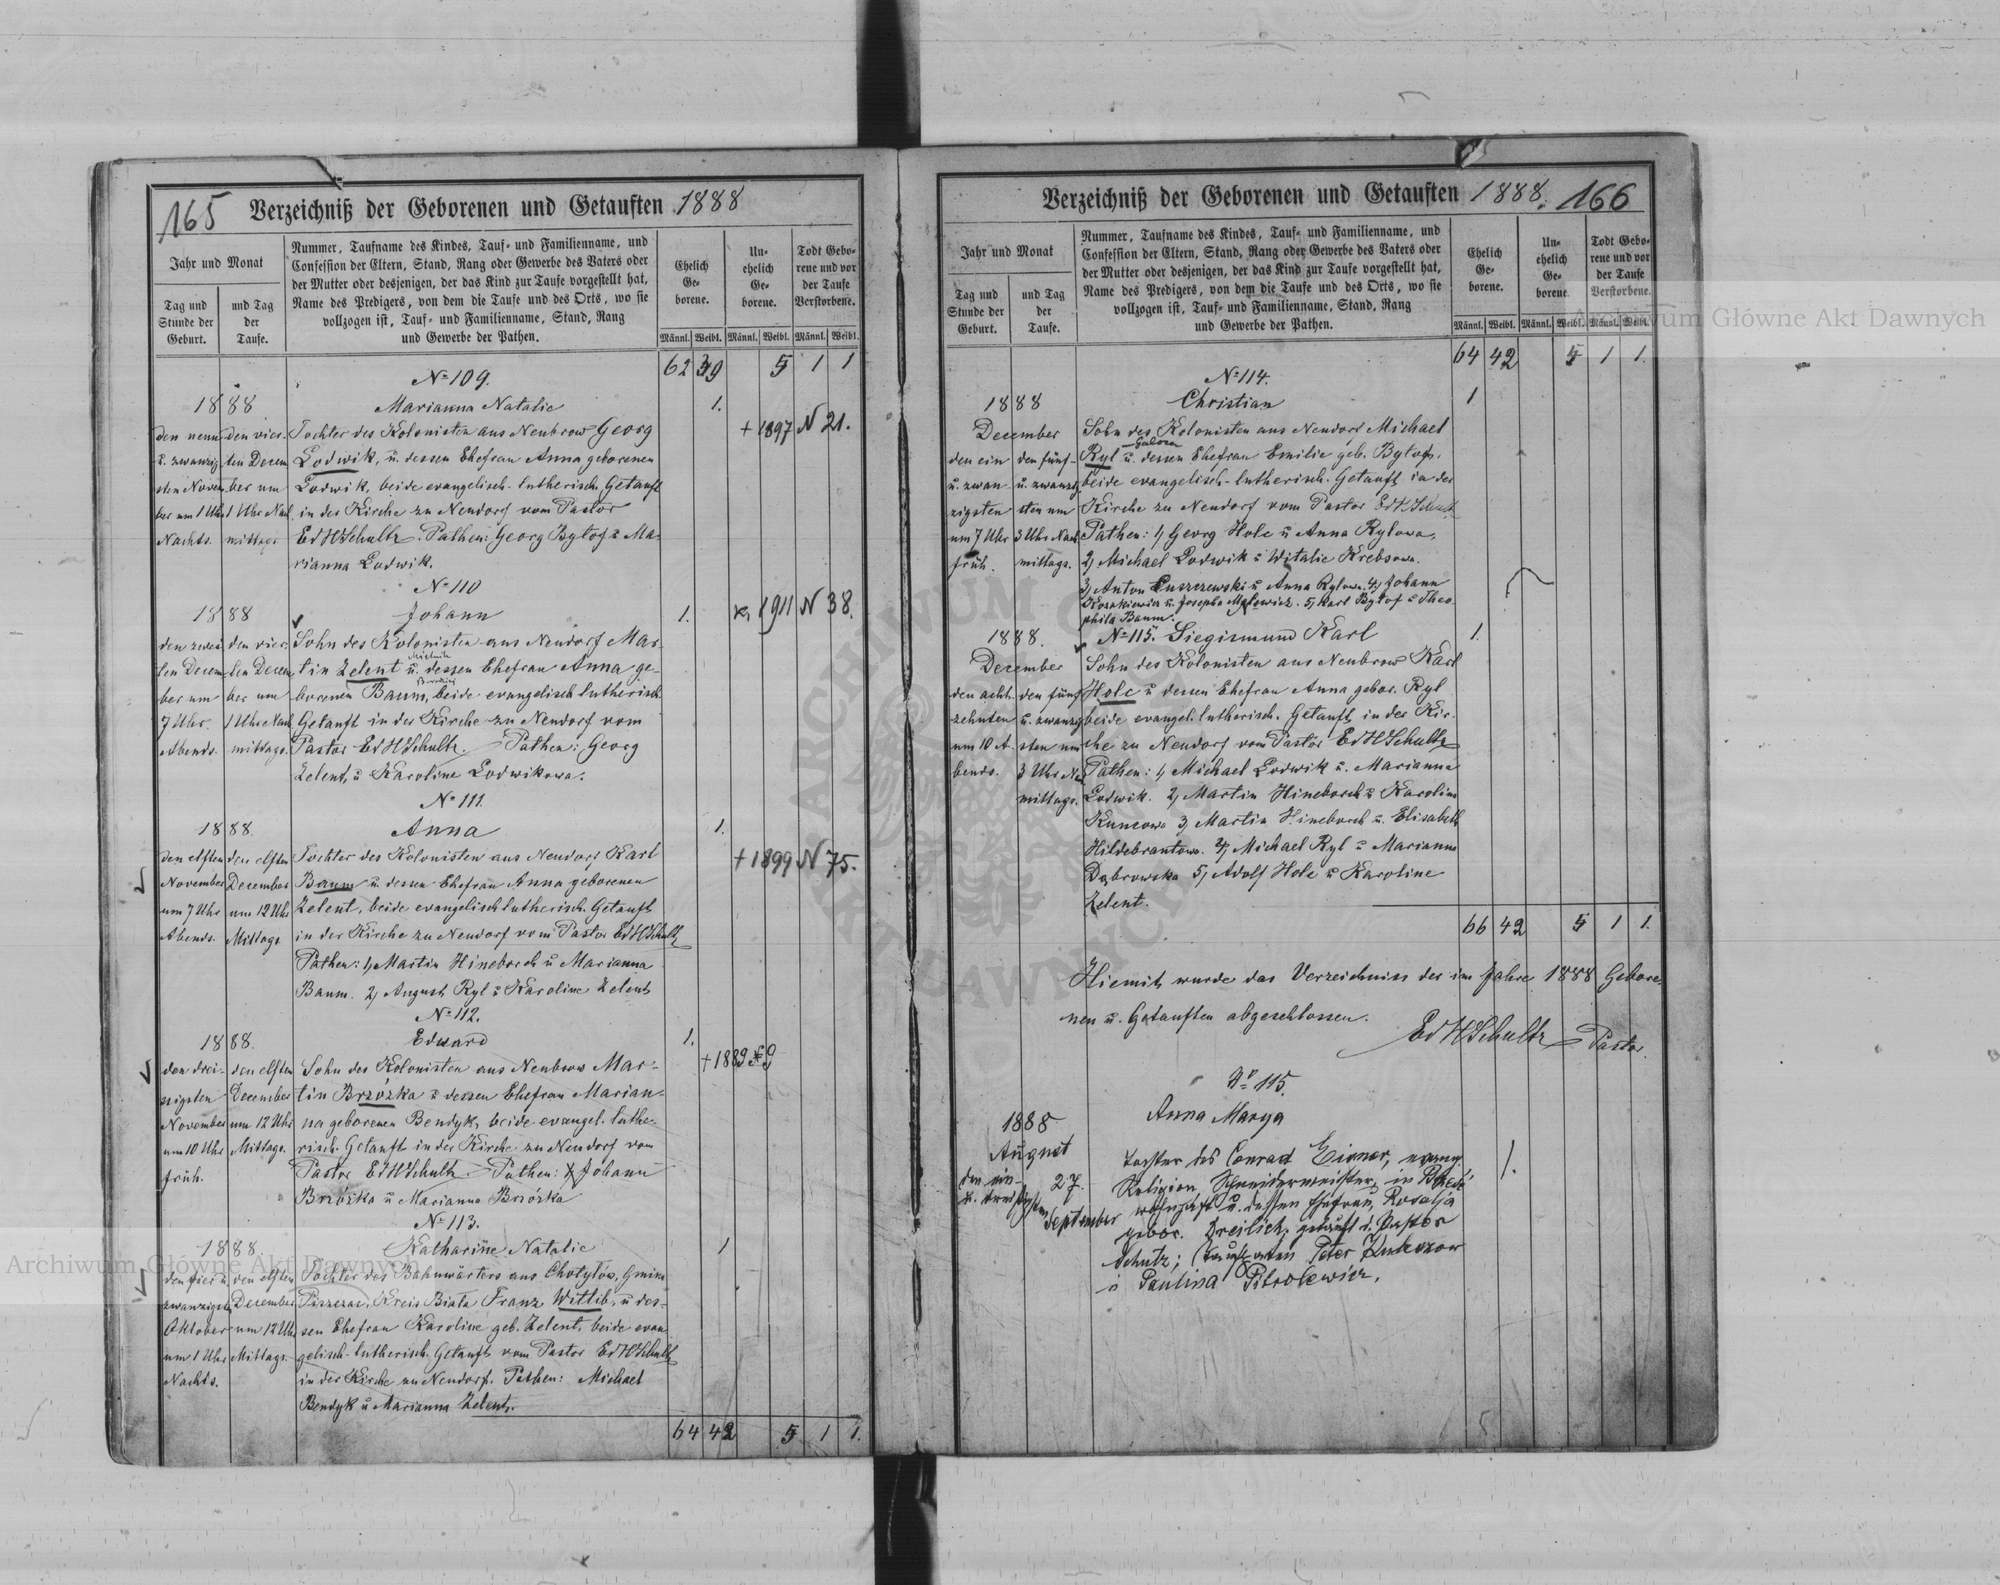 165 Verzeichniß der Geborenen und Getauften 1888
Jahr und Monat
Tag und Stunde der Geburt.
und Tag der Taufe.
Nummer, Taufname des Kindes, Tauf- und Familienname, und
Confession der Eltern, Stand, Rang oder Gewerbe des Vaters oder
der Mutter oder desjenigen, der das Kind zur Taufe vorgestellt hat,
Name des Predigers, von dem die Taufe und des Orts, wo sie
vollzogen ist, Tauf- und Familienname, Stand, Rang
und Gewerbe der Pathen.
Ehelich Geborene.
Unehelich Geborene.
Todt Geborene und vor der Taufe Verstorbene.
Männl. Weibl. Männl. Weibl. Männl. Weibl.
62 39 5 1 1
№ 109.
1888
Marianna Natalie 1.
den neun u. zwanzigsten November um 1 Uhr Nachts.
den vierten December um 1 Uhr Nachmittags
Tochter des Kolonisten aus Neubrow Georg
+ 1897 N 21.
Lodwik, u. dessen Ehefrau Anna geborenen
Lodwik, beide evangelisch-lutherisch. Getauft
in der Kirche zu Neudorf vom Pastor
EdHSchultz. Pathen: Georg Bytof u Ma-
rianna Lodwik.
№ 110
1888
Johann 1. 1911 N 38.
den zweiten December um 7 Uhr Abends.
den vierten December um 1 Uhr Nachmittags.
Sohn des Kolonisten aus Neudorf Mar-
tin Zelent u. dessen Ehefrau Anna ge-
borenen Baum, beide evangelisch lutherisch
Getauft in der Kirche zu Neudorf vom
Pastor EdHSchultz. Pathen: Georg
Zelent, u Karoline Lodwikowa.
№ 111.
1888.
Anna 1.
den elften November um 7 Uhr Abends.
den elften December um 12 Uhr Mittags
Tochter des Kolonisten aus Neudorf Karl
+ 1899 N 75.
Baum u dessen Ehefrau Anna geborenen
Zelent, beide evangelisch lutherisch. Getauft
in der Kirche zu Neudorf vom Pastor EdHSchultz
Pathen: 1, Martin Hineborch u Marianna
Baum. 2, August Ryl u Karoline Zelent
№ 112.
1888.
Edward 1.
+ 1889 № 9
den dreissigsten November um 10 Uhr früh.
den elften December um 12 Uhr Mittags.
Sohn des Kolonisten aus Neubrow Mar-
tin Brzózka u dessen Ehefrau Marian-
na geborenen Bendyk, beide evangel. luthe-
risch. Getauft in der Kirche zu Neudorf vom
Pastor EdHSchultz. Pathen: Johann
Brzózka u Marianna Brzózka
№ 113.
1888.
Katharine Natalie 1
den vier u. zwanzigsten Oktober um 1 Uhr Nachts.
den elften December um 12 Uhr Mittags.
Tochter des Bahnwärters aus Chotyłów, Gmina
Piszczac, Kreis Biała Franz Wittib, u des-
sen Ehefrau Karoline geb. Zelent, beide evan-
gelisch-lutherisch. Getauft vom Pastor EdHSchultz
in der Kirche zu Neudorf. Pathen: Michael
Bendyk u Marianna Zelent.
64 42 5 1 1.
Verzeichniß der Geborenen und Getauften 1888. 166
Jahr und Monat
Tag und Stunde der Geburt.
und Tag der Taufe.
Nummer, Taufname des Kindes, Tauf- und Familienname, und
Confession der Eltern, Stand, Rang oder Gewerbe des Vaters oder
der Mutter oder desjenigen, der das Kind zur Taufe vorgestellt hat,
Name des Predigers, von dem die Taufe und des Orts, wo sie
vollzogen ist, Tauf- und Familienname, Stand, Rang
und Gewerbe der Pathen.
Ehelich Geborene.
Unehelich Geborene
Todt Geborene und vor der Taufe Verstorbene.
Männl. Weibl. Männl. Weibl. Männl. Weibl.
64 42 5 1 1.
№ 114.
1888
Christian 1
December
den ein u. zwanzigsten um 7 Uhr früh.
den fünf u. zwanzigsten um 3 Uhr Nachmittags.
Sohn des Kolonisten aus Neudorf Michael
Ryl u. dessen Ehefrau Emilie geb. Bytof,
beide evangelisch-lutherisch. Getauft in der
Kirche zu Neudorf vom Pastor EdHSchultz
Pathen: 1, Georg Hole u Anna Rylowa,
2, Michael Lodwik u Witalie Krebsowa.
3, Anton Luszczewski u Anna Rylowa. 4, Johann
Kozakiewicz u Josepha Malowicz. 5, Karl Bytof u Theo-
phila Baum.
1888.
№ 115. Siegismund Karl 1.
December
den achtzehnten um 10 Abends.
den fünf u. zwanzigsten um 3 Uhr Nachmittags.
Sohn des Kolonisten aus Neubrow Karl
Hole u dessen Ehefrau Anna gebor. Ryl
beide evangel. lutherisch. Getauft in der Kir-
che zu Neudorf vom Pastor EdHSchultz
Pathen: 1, Michael Lodwik u. Marianna
Lodwik. 2, Martin Hineborch u Karolina
Kuncowa 3, Martin Hineborch u. Elisabeth
Hildebrantowa. 4, Michael Ryl u Marianna
Dąbrowska 5, Adolf Hole u Karoline
Zelent.
66 42 5 1 1.
Hiemit wurde das Verzeichniss der im Jahre 1888 Gebore-
nen u. Getauften abgeschlossen.
EdHSchultz Pastor.
№ 115.
1888
Anna Marya
August
27. September
Tochter des Conrad Eisner, evang.
Religion, Schneidermeister, in
wohnhaft u. dessen Ehefrau Rosalja
gebor. Dreilich, getauft d. Pastor
Schultz; Taufpaten Peter
u Paulina Pitrolewicz.
1.
Archiwum Główne Akt Dawnych
Archiwum Główne Akt Dawnych
ARCHIWUM GŁÓWNE AKT DAWNYCH